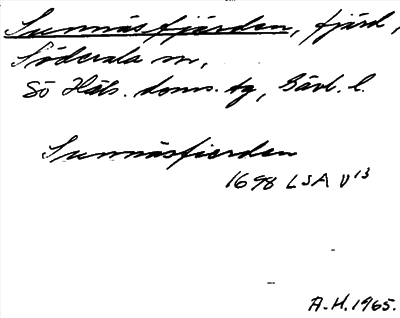 Sunnäsfjärden, fjärd,
Söderala sn,
Sö Häls. doms. tg, Gävl. l.
Sunnäsfierden
1698 LSA V¹³
A.H. 1965.